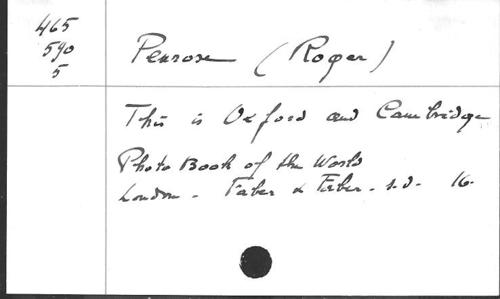 465
590
5
Penrose (Roger)
This is Oxford and Cambridge
Photo Book of the World
London - Faber & Faber - s.d. - 16.